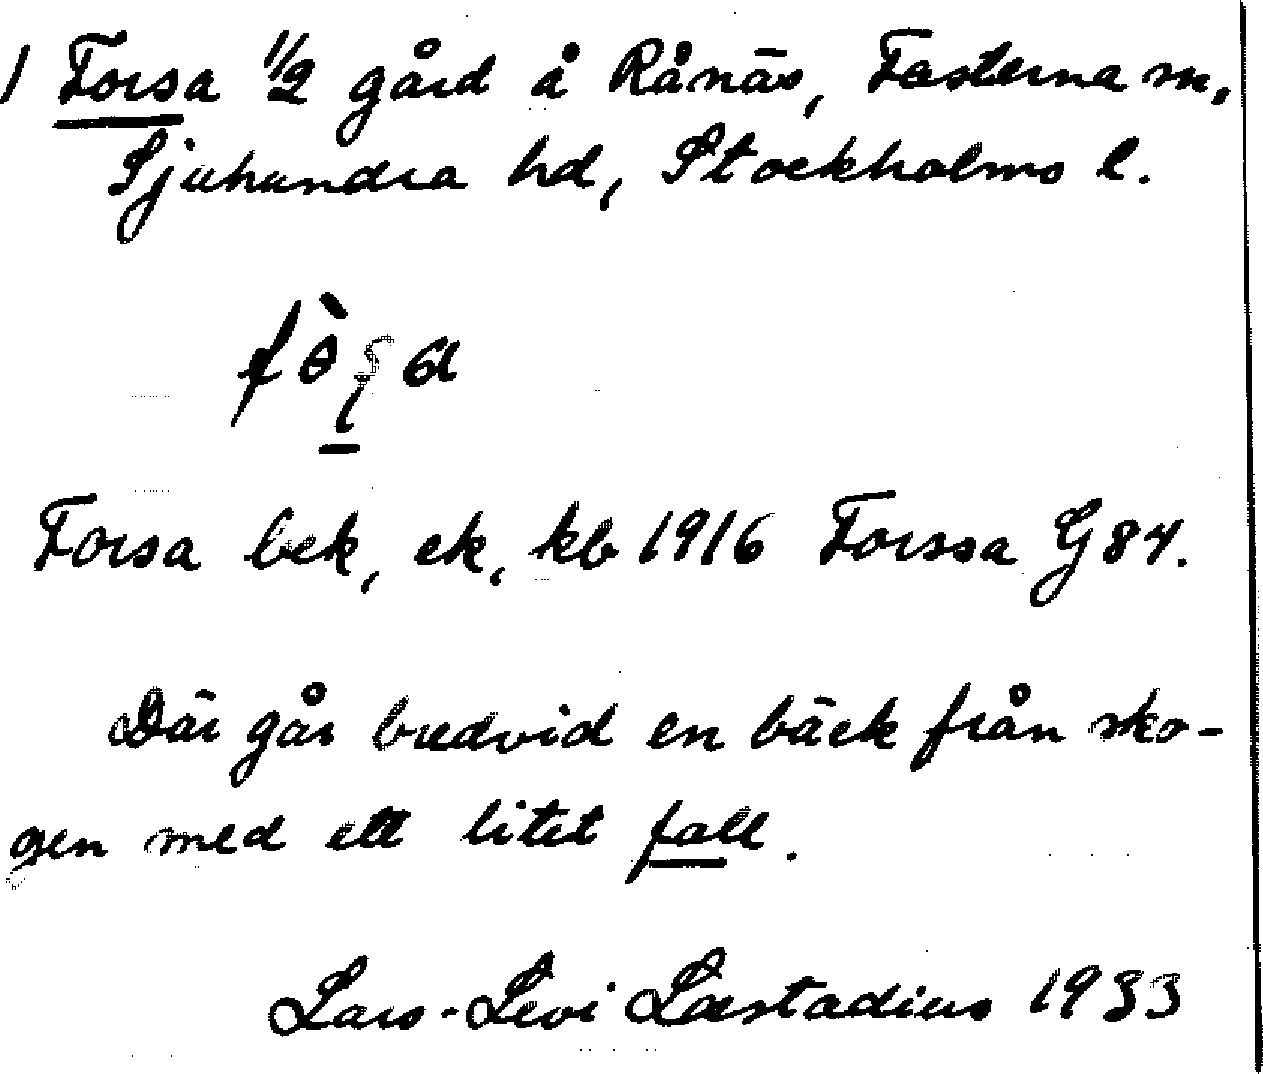 1 Forsa 1/2 gård å Rånäs, Fasterna sn,
Sjuhundra hd, Stockholms l.
Forsa bek, ek, kb 1916 Forssa G 84.
Där går bredvid en bäck från sko-
gen med ett litet fall.
Lars-Levi Læstadius 1933